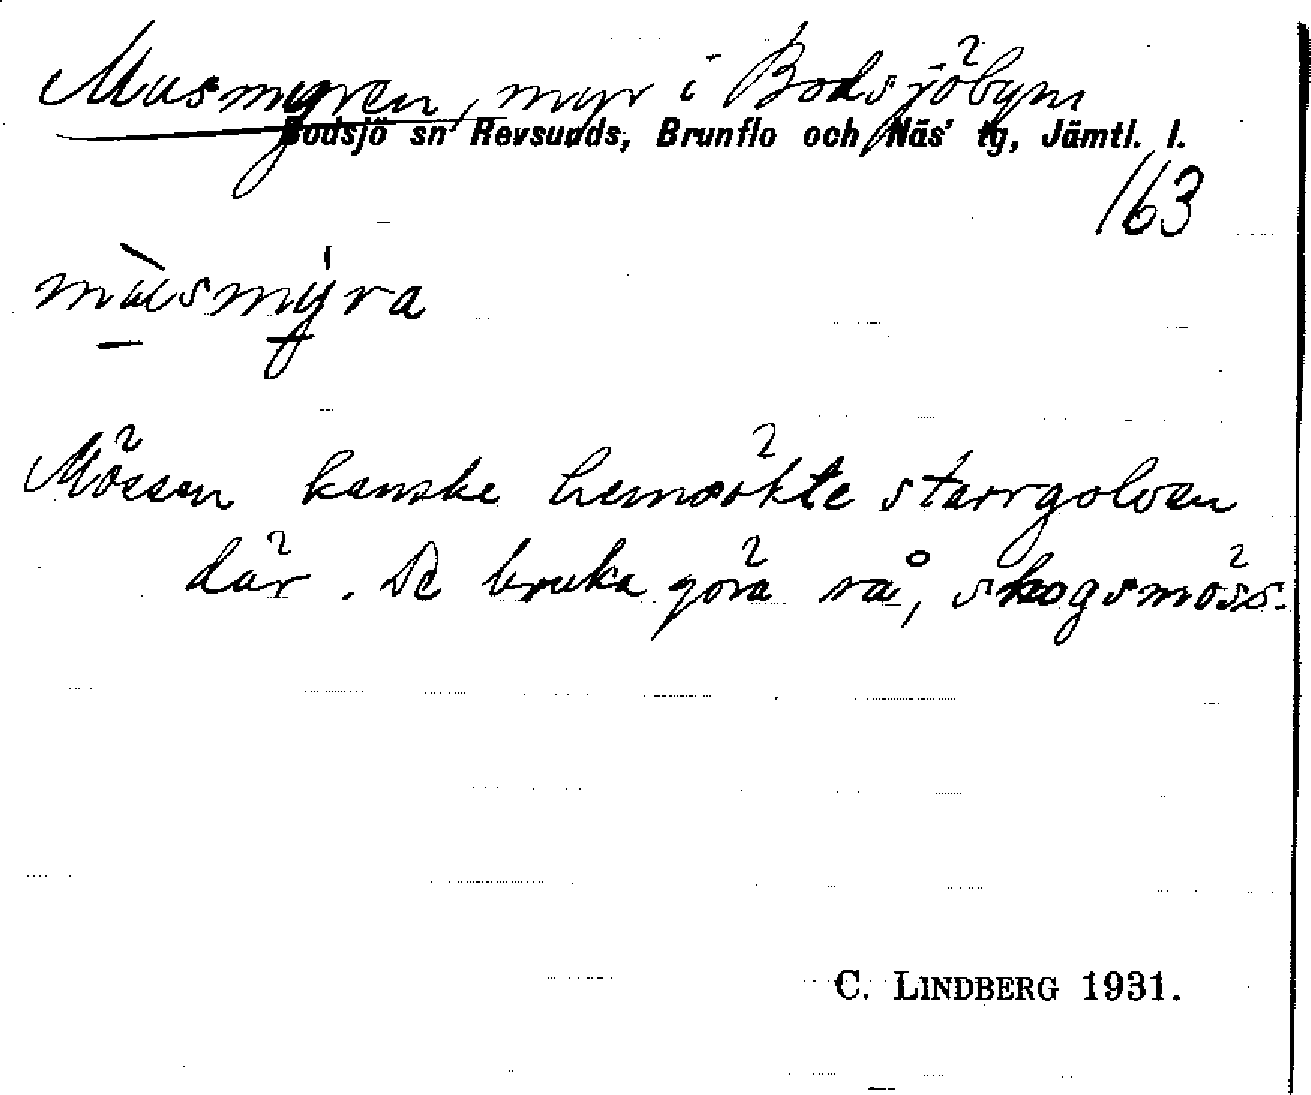 Musmyren, myr i Bodsjöbyn
Bodsjö sn Revsunds, Brunflo och Näs' tg, Jämtl. l.
163
mùsmýra
Mössen kanske hemsökte starrgolven
där. De bruka göra så, skogsmöss.
C. LINDBERG 1931.